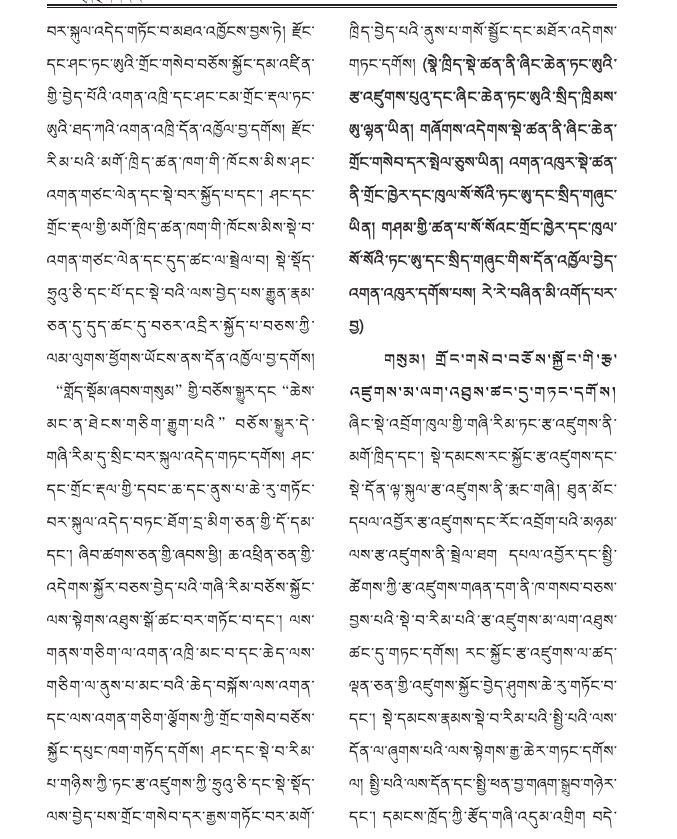 བར་སྐུལ་འདེད་གཏོང་བ་མཐའ་འཁྱོངས་བྱས་ཏེ། རྫོང་
དང་ཤང་ཏང་ཨུའི་གྲོང་གསེབ་བཅོས་སྐྱོང་དམ་འཛིན་
གྱི་བྱེད་པོའི་འགན་འཁྲི་དང་ཤང་ངམ་གྲོང་རྡལ་ཏང་
ཨུའི་ཐད་ཀའི་འགན་འཁྲི་དོན་འཁྱོལ་བྱ་དགོས། རྫོང་
རིམ་པའི་མགོ་ཁྲིད་ཚན་ཁག་གི་ཁོངས་མིས་ཤང་
འགན་གཙང་ལེན་དང་སྡེ་བར་སྐྱོད་པ་དང་། ཤང་དང་
གྲོང་རྡལ་གྱི་མགོ་ཁྲིད་ཚན་ཁག་གི་ཁོངས་མིས་སྡེ་བ་
འགན་གཙང་ལེན་དང་དུད་ཚང་ལ་སྦྲེལ་བ། སྡེ་སྡོད་
ཧྲུའུ་ཅི་དང་པོ་དང་སྡེ་བའི་ལས་བྱེད་པས་རྒྱུན་རྣམ་
ཅན་དུ་དུད་ཚང་དུ་བཅར་འདྲིར་སྐྱོད་པ་བཅས་ཀྱི་
ལམ་ལུགས་ཕྱོགས་ཡོངས་ནས་དོན་འཁྱོལ་བྱ་དགོས།
“གློད་སྡོམ་ཞབས་གསུམ”གྱི་བཅོས་སྒྱུར་དང “ཆེས་
མང་ན་ཐེངས་གཅིག་རྒྱུག་པའི” བཅོས་སྒྱུར་དེ་
གཞི་རིམ་དུ་སྲིང་བར་སྐུལ་འདེད་གཏང་དགོས། ཤང་
དང་གྲོང་རྡལ་གྱི་དབང་ཆ་དང་ནུས་པ་ཆེ་རུ་གཏོང་
བར་སྐུལ་འདེད་བཏང་ཐོག་དྲ་མིག་ཅན་གྱི་དོ་དམ་
དང་། ཞིབ་ཚགས་ཅན་གྱི་ཞབས་ཕྱི། ཆ་འཕྲིན་ཅན་གྱི་
འདེགས་སྐྱོར་བཅས་བྱེད་པའི་གཞི་རིམ་བཅོས་སྐྱོང་
ལས་སྟེགས་འཐུས་སྒོ་ཚང་བར་གཏོང་བ་དང་། ལས་
གནས་གཅིག་ལ་འགན་འཁྲི་མང་བ་དང་ཆེད་ལས་
གཅིག་ལ་ནུས་པ་མང་བའི་ཆེད་བསྐོས་ལས་འགན་
དང་ལས་འགན་གཅིག་ལྕོགས་ཀྱི་གྲོང་གསེབ་བཅོས་
སྐྱོང་དཔུང་ཁག་གཏོད་དགོས། ཤང་དང་སྡེ་བ་རིམ་
པ་གཉིས་ཀྱི་ཏང་རྩ་འཛུགས་ཀྱི་ཧྲུའུ་ཅི་དང་སྡེ་སྡོད་
ལས་བྱེད་པས་གྲོང་གསེབ་དར་རྒྱས་གཏོང་བར་མགོ་
ཁྲིད་བྱེད་པའི་ནུས་པ་གསོ་སྦྱོང་དང་མཐོར་འདེགས་
གཏང་དགོས། (སྣེ་ཁྲིད་སྡེ་ཚན་ནི་ཞིང་ཆེན་ཏང་ཨུའི་
རྩ་འཛུགས་པུའུ་དང་ཞིང་ཆེན་ཏང་ཨུའི་སྲིད་ཁྲིམས་
ཨུ་ལྷན་ཡིན། གཞོགས་འདེགས་སྡེ་ཚན་ནི་ཞིང་ཆེན་
གྲོང་གསེབ་དར་སྤེལ་ཅུས་ཡིན། འགན་འཁུར་སྡེ་ཚན་
ནི་གྲོང་ཁྱེར་དང་ཁུལ་སོ་སོའི་ཏང་ཨུ་དང་སྲིད་གཞུང་
ཡིན། གཤམ་གྱི་ཚན་པ་སོ་སོའང་གྲོང་ཁྱེར་དང་ཁུལ་
སོ་སོའི་ཏང་ཨུ་དང་སྲིད་གཞུང་གིས་དོན་འཁྱོལ་བྱེད་
འགན་འཁུར་དགོས་པས། རེ་རེ་བཞིན་མི་འགོད་པར་
བྱ)
གསུམ། གྲོང་གསེབ་བཅོས་སྐྱོང་གི་རྩ་
འཛུགས་མ་ལག་འཐུས་ཚང་དུ་གཏང་དགོས།
ཞིང་སྡེ་འབྲོག་ཁུལ་གྱི་གཞི་རིམ་ཏང་རྩ་འཛུགས་ནི་
མགོ་ཁྲིད་དང་། སྡེ་དམངས་རང་སྐྱོང་རྩ་འཛུགས་དང་
སྡེ་དོན་ལྟ་སྐུལ་རྩ་འཛུགས་ནི་རྨང་གཞི། ཐུན་མོང་
དཔལ་འབྱོར་རྩ་འཛུགས་དང་རོང་འབྲོག་པའི་མཉམ་
ལས་རྩ་འཛུགས་ནི་སྦྲེལ་ཐག དཔལ་འབྱོར་དང་སྤྱི་
ཚོགས་ཀྱི་རྩ་འཛུགས་གཞན་དག་ནི་ཁ་གསབ་བཅས་
བྱས་པའི་སྡེ་བ་རིམ་པའི་རྩ་འཛུགས་མ་ལག་འཐུས་
ཚང་དུ་གཏང་དགོས། རང་སྐྱོང་རྩ་འཛུགས་ལ་ཚད་
ལྡན་ཅན་གྱི་འཛུགས་སྐྱོང་བྱེད་ཤུགས་ཆེ་རུ་གཏོང་བ་
དང་། སྡེ་དམངས་རྣམས་སྡེ་བ་རིམ་པའི་སྤྱི་པའི་ལས་
དོན་ལ་ཞུགས་པའི་ལས་སྟེགས་རྒྱ་ཆེར་གཏང་དགོས་
ལ། སྤྱི་པའི་ལས་དོན་དང་སྤྱི་ཕན་བྱ་གཞག་སྒྲུབ་གཉེར་
དང་། དམངས་ཁྲོད་ཀྱི་རྩོད་གཞི་འདུམ་འགྲིག བདེ་